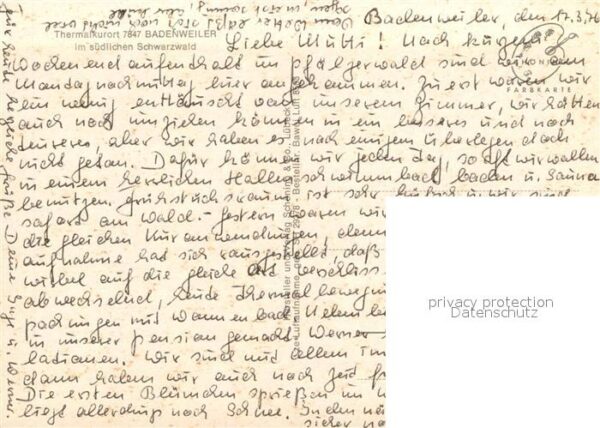 Thermalkurort 7847 BADENWEILER
im südlichen Schwarzwald
Badenweiler, den 17.3.76
Liebe Mutti! Nach kurzem
Wochenendaufenthalt im Pfälzerwald sind wir am
Montag nachmittag hier angekommen. Zuerst waren wir
ein wenig enttäuscht von unserem Zimmer, wir hätten
auch noch umziehen können in ein besseres und noch
teureres, aber wir haben es nach einigem Überlegen doch
nicht getan. Dafür können wir jeden Tag, so oft wir wollen
in einem herrlichen Hallenschwimmbad baden u. Sauna
benutzen. Frühstücksraum ist sehr hübsch u. wir sind
sofort am Wald. Gestern waren wir
die gleichen Kuranwendungen, denn
aufnahme hat sich rausgestellt, daß
wirbel auf die gleiche Art verschliss
abwechselnd, heute Thermalbewegung
packungen mit Wannenbad
in unserer Pension gemacht. Werner
Wir sind mit allem im
dann haben wir auch noch Zeit
Die ersten Blümchen sprießen im
liegt allerdings noch Schnee. In den
sicher
Für heute herzliche Grüße Deine Inge u. Werner.
FARBKARTE
privacy protection
Datenschutz